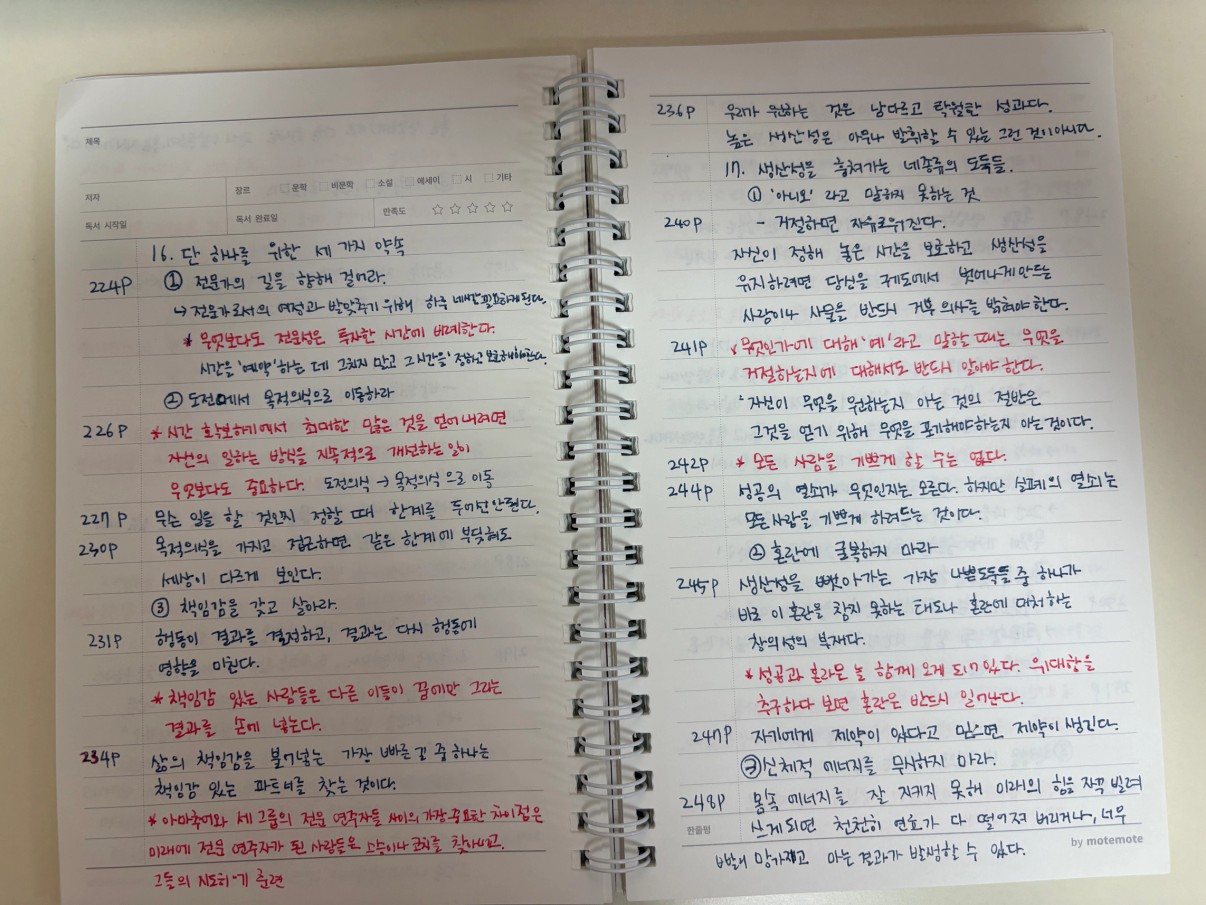 제목
저자
장르 문학 비문학 소설 에세이 시 기타
독서 시작일 독서 완료일 만족도
16. 단 하나를 위한 세 가지 약속
224P ① 전문가의 길을 향해 걸어라.
↳ 전문가로서의 여정과 발맞추기 위해 하루 네시간 필요하게 된다.
* 무엇보다도 전문성은 투자한 시간에 비례한다.
시간을 '예약'하는 데 그치지 말고 그 시간을 정하고 보호해야한다.
② 도전에서 목적의식으로 이동하라
226P * 시간 확보하기에서 최대한 많은 것을 얻어내려면
자신의 일하는 방식을 지속적으로 개선하는 일이
무엇보다도 중요하다. 도전의식 → 목적의식으로 이동
227P 무슨 일을 할 것인지 정할 때 한계를 두어선 안된다.
230P 목적의식을 가지고 접근하면 같은 한계에 부딪혀도
세상이 다르게 보인다.
③ 책임감을 갖고 살아라.
231P 행동이 결과를 결정하고, 결과는 다시 행동에
영향을 미친다.
* 책임감 있는 사람들은 다른 이들이 꿈에만 그리는
결과를 손에 넣는다.
234P 삶의 책임감을 불어넣는 가장 빠른 길 중 하나는
책임감 있는 파트너를 찾는 것이다.
* 아마추어와 세 그룹의 전문 연주자들 사이의 가장 중요한 차이점은
미래에 전문 연주자가 된 사람들은 스승이나 코치를 찾아내고,
그들의 지도하에 훈련
236P 우리가 원하는 것은 남다르고 탁월한 성과다.
높은 생산성은 아무나 발휘할 수 있는 그런 것이 아니다.
17. 생산성을 훔쳐가는 네종류의 도둑들.
① '아니오' 라고 말하지 못하는 것
240P - 거절하면 자유로워진다.
자신이 정해 놓은 시간을 보호하고 생산성을
유지하려면 당신을 궤도에서 벗어나게 만드는
사람이나 사물을 반드시 거부 의사를 밝혀야 한다.
241P * 무엇인가에 대해 '예'라고 말할 때는 무엇을
거절하는지에 대해서도 반드시 알아야 한다.
' 자신이 무엇을 원하는지 아는 것의 절반은
그것을 얻기 위해 무엇을 포기해야하는지 아는 것이다.
242P * 모든 사람을 기쁘게 할 수는 없다.
244P 성공의 열쇠가 무엇인지는 모른다. 하지만 실패의 열쇠는
모든 사람을 기쁘게 하려드는 것이다.
② 혼란에 굴복하지 마라
245P 생산성을 빼앗아가는 가장 나쁜 도둑들 중 하나가
바로 이 혼란을 참지 못하는 태도나 혼란에 대처하는
창의성의 부재다.
* 성공과 혼란은 늘 함께 오게 되어 있다. 위대함을
추구하다 보면 혼란은 반드시 일어난다.
247P 자기에게 제약이 있다고 믿으면 제약이 생긴다.
③ 신체적 에너지를 무시하지 마라.
248P 몸속 에너지를 잘 지키지 못해 미래의 힘을 자꾸 빌려
쓰게되면 천천히 연료가 다 떨어져 버리거나, 너무
빨리 망가지고 마는 결과가 발생할 수 있다.
한줄평
by motemote